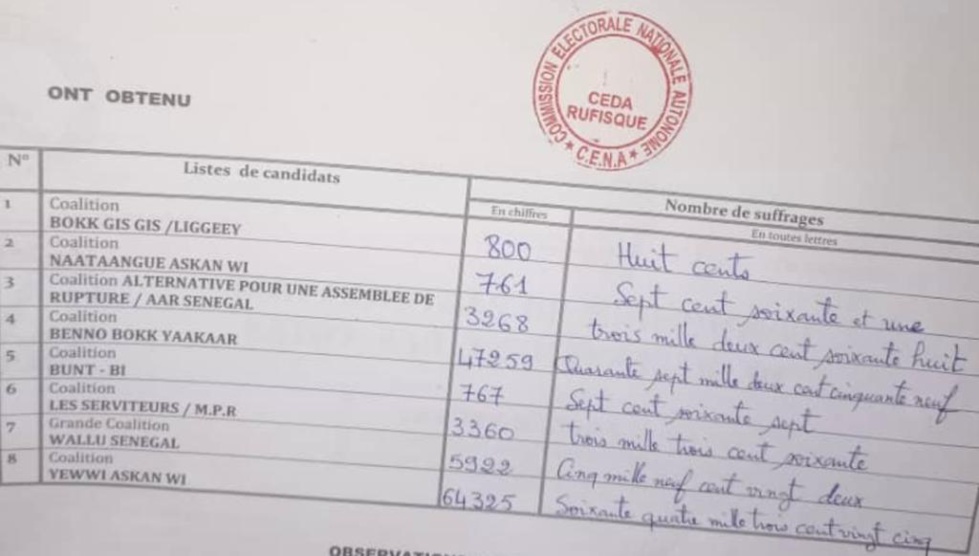 COMMISSION ELECTORALE NATIONALE AUTONOME
CEDA
RUFISQUE
* C.E.N.A *
ONT OBTENU
N° Listes de candidats Nombre de suffrages
En chiffres En toutes lettres
1 Coalition
BOKK GIS GIS /LIGGEEY 800 Huit cents
2 Coalition
NAATAANGUE ASKAN WI 761 Sept cent soixante et une
3 Coalition ALTERNATIVE POUR UNE ASSEMBLEE DE
RUPTURE / AAR SENEGAL 3268 trois mille deux cent soixante huit
4 Coalition
BENNO BOKK YAAKAAR 47259 Quarante sept mille deux cent cinquante neuf
5 Coalition
BUNT - BI 767 Sept cent soixante sept
6 Coalition
LES SERVITEURS / M.P.R 3360 trois mille trois cent soixante
7 Grande Coalition
WALLU SENEGAL 5922 Cinq mille neuf cent vingt deux
8 Coalition
YEWWI ASKAN WI 64325 Soixante quatre mille trois cent vingt cinq